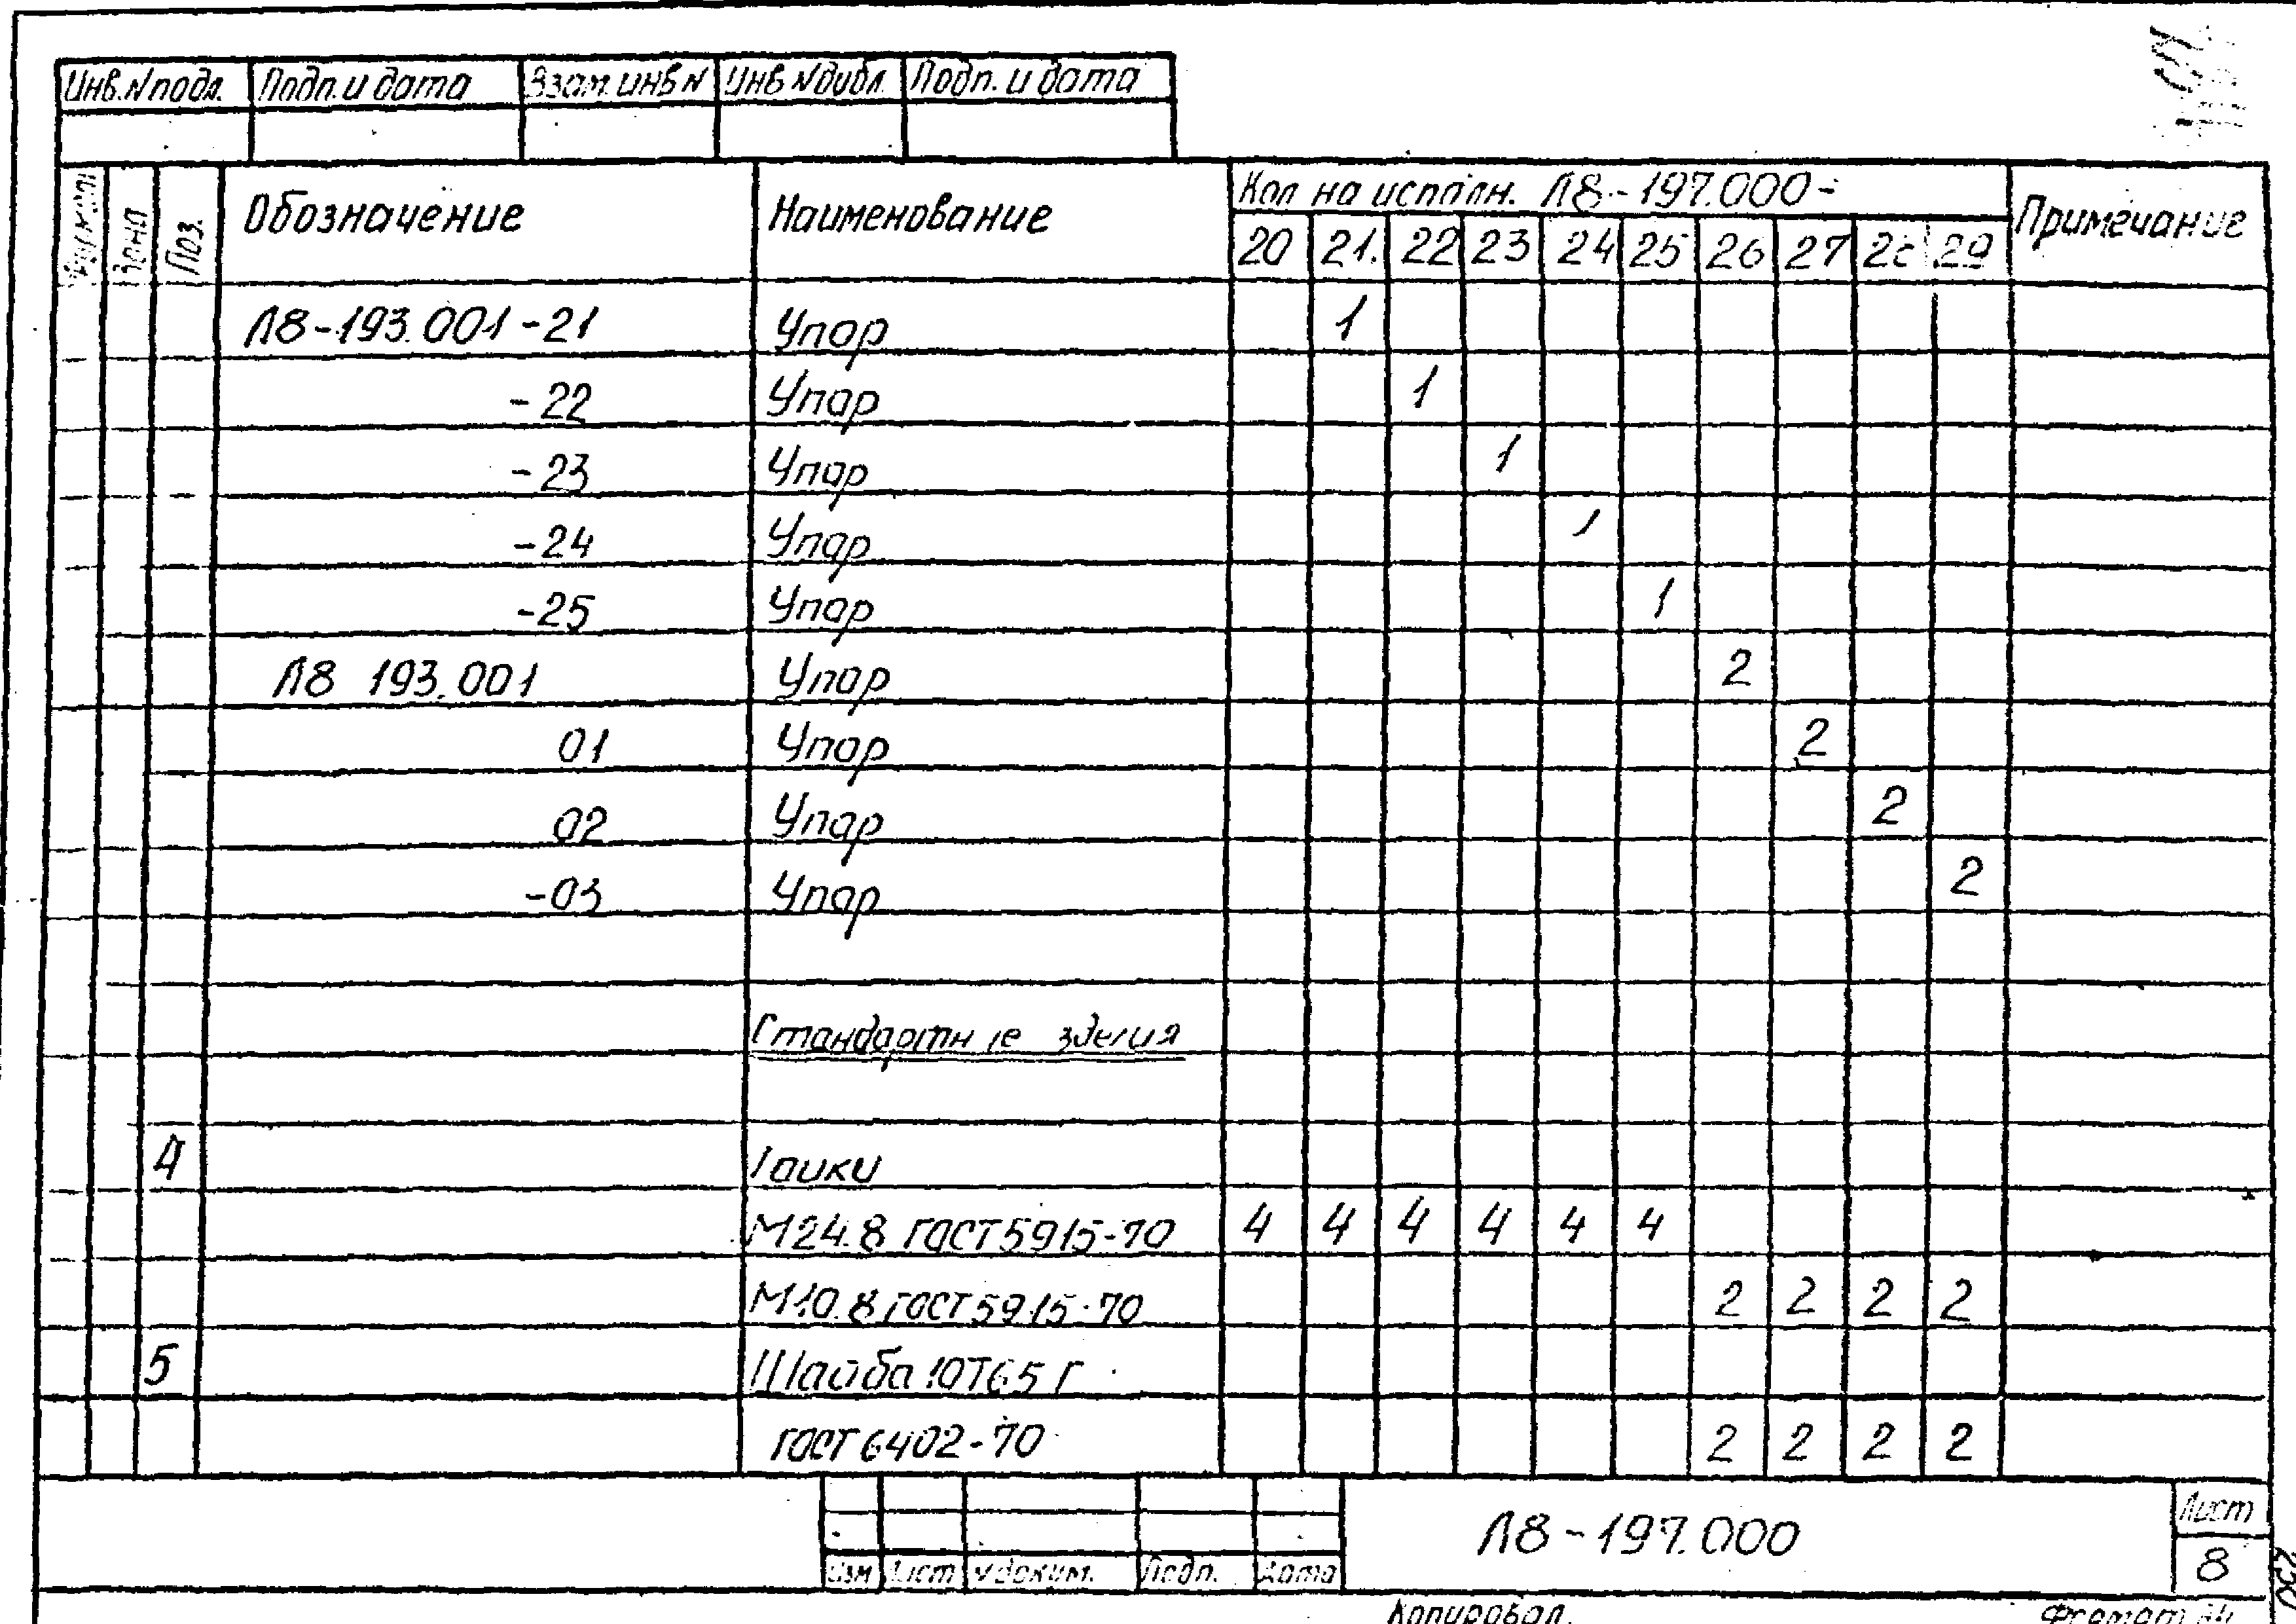 Инв.N подл. Подп. и дата Взам. инв N Инв N дубл. Подп. и дата
Зона Поз. Обозначение Наименование Кол на исполн. Л8-197.000- Примечание
20 21. 22 23 24 25 26 27 28 29
Л8-193.001-21 Упор 1
-22 Упор 1
-23 Упор 1
-24 Упор 1
-25 Упор 1
Л8 193.001 Упор 2
01 Упор 2
02 Упор 2
-03 Упор 2
Стандартные изделия
4 Гайки
М24.8 ГОСТ 5915-70 4 4 4 4 4 4
М10.8 ГОСТ 5915-70 2 2 2 2
5 Шайба 10Т65Г
ГОСТ 6402-70 2 2 2 2
Л8-197.000 Лист
Изм Лист N докум. Подп. Дата 8
Копировал. Формат